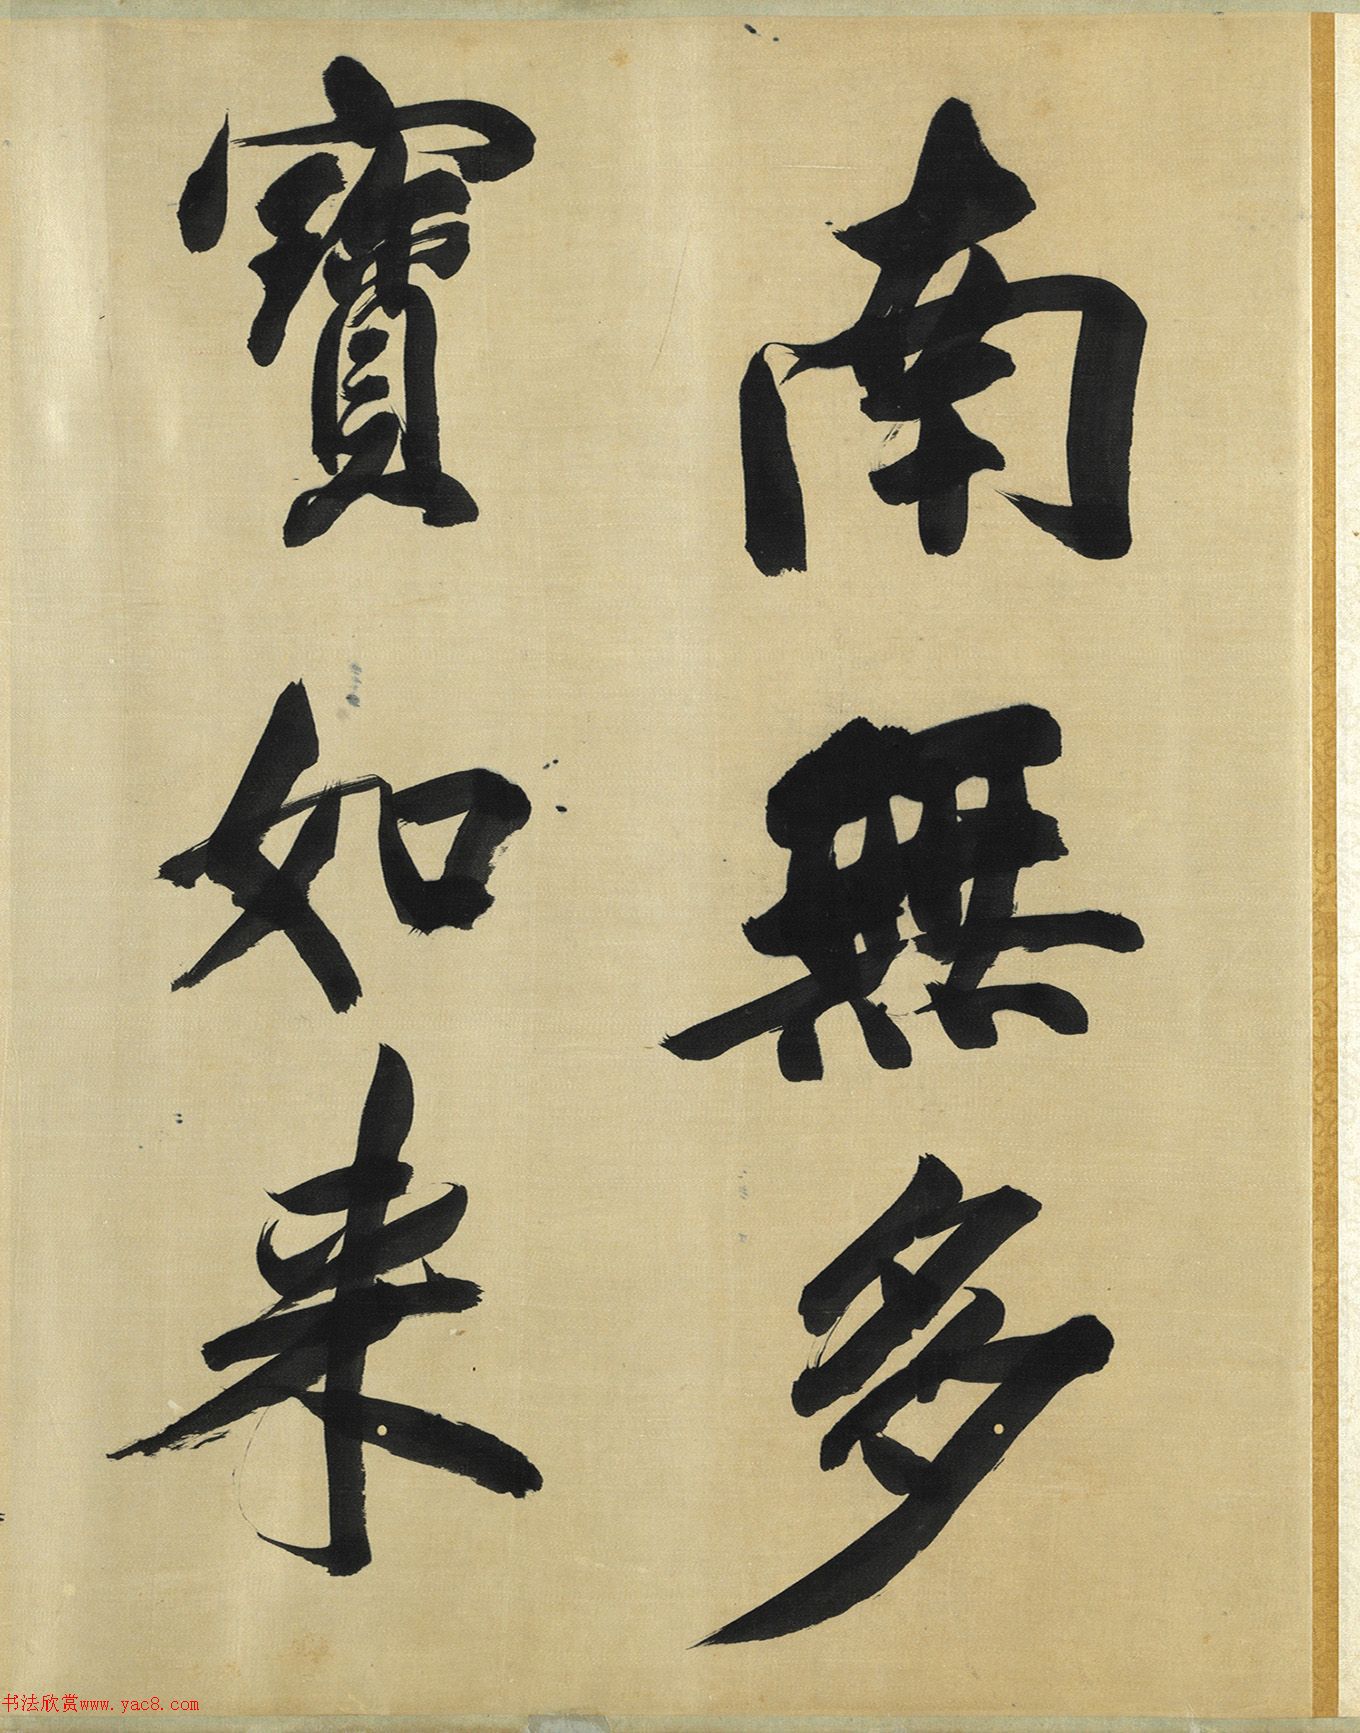 南無多
寶如来
书法欣赏www.yac8.com